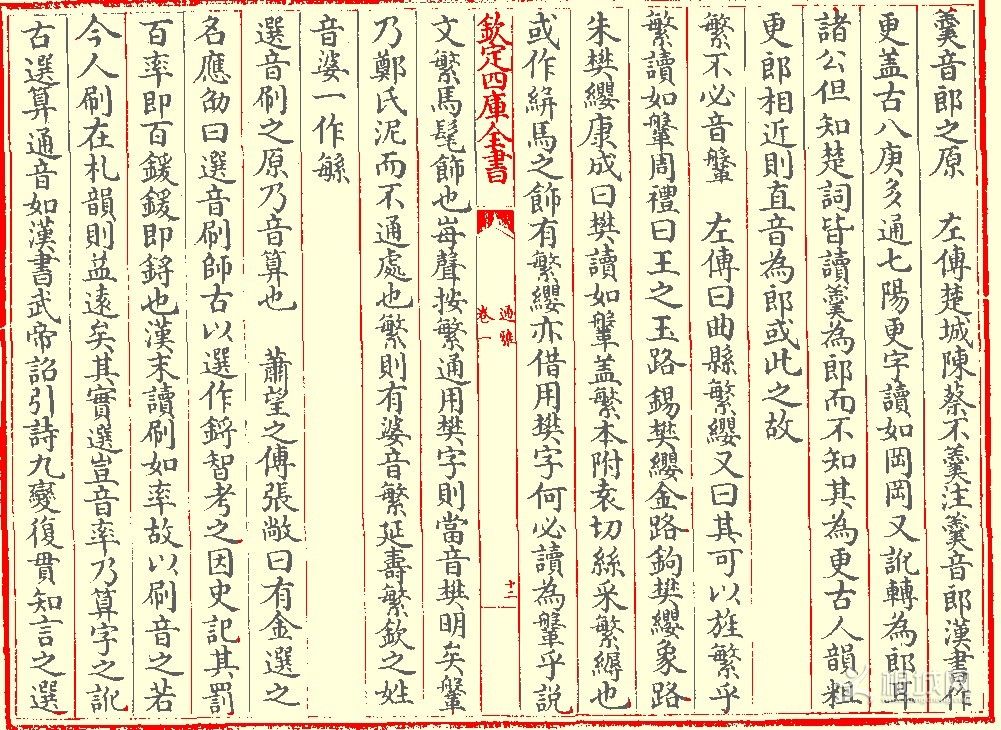 羹音郎之原　左傳楚城陳蔡不羹注羹音郎漢書作
更盖古八庚多通七陽更字讀如岡岡又訛轉為郎耳
諸公但知楚詞皆讀羹為郎而不知其為更古人韻粗
更郎相近則直音為郎或此之故
繁不必音鞶　左傳曰曲縣繁纓又曰其可以旌繁乎
繁讀如鞶周禮曰王之玉路錫樊纓金路鉤樊纓象路
朱樊纓康成曰樊讀如鞶盖繁本附袁切絲采繁縟也
或作緐馬之飾有繁纓亦借用樊字何必讀為鞶乎説
欽定四庫全書
通雅
卷一
十二
文繁馬髦飾也每聲按繁通用樊字則當音樊明矣鞶
乃鄭氏泥而不通處也繁則有婆音繁延壽繁欽之姓
音婆一作緐
選音刷之原乃音算也　蕭望之傳張敞曰有金選之
名應劭曰選音刷師古以選作鋝智考之因史記其罰
百率即百鍰鍰即鋝也漢末讀刷如率故以刷音之若
今人刷在札韻則益遠矣其實選豈音率乃算字之訛
古選算通音如漢書武帝詔引詩九變復貫知言之選